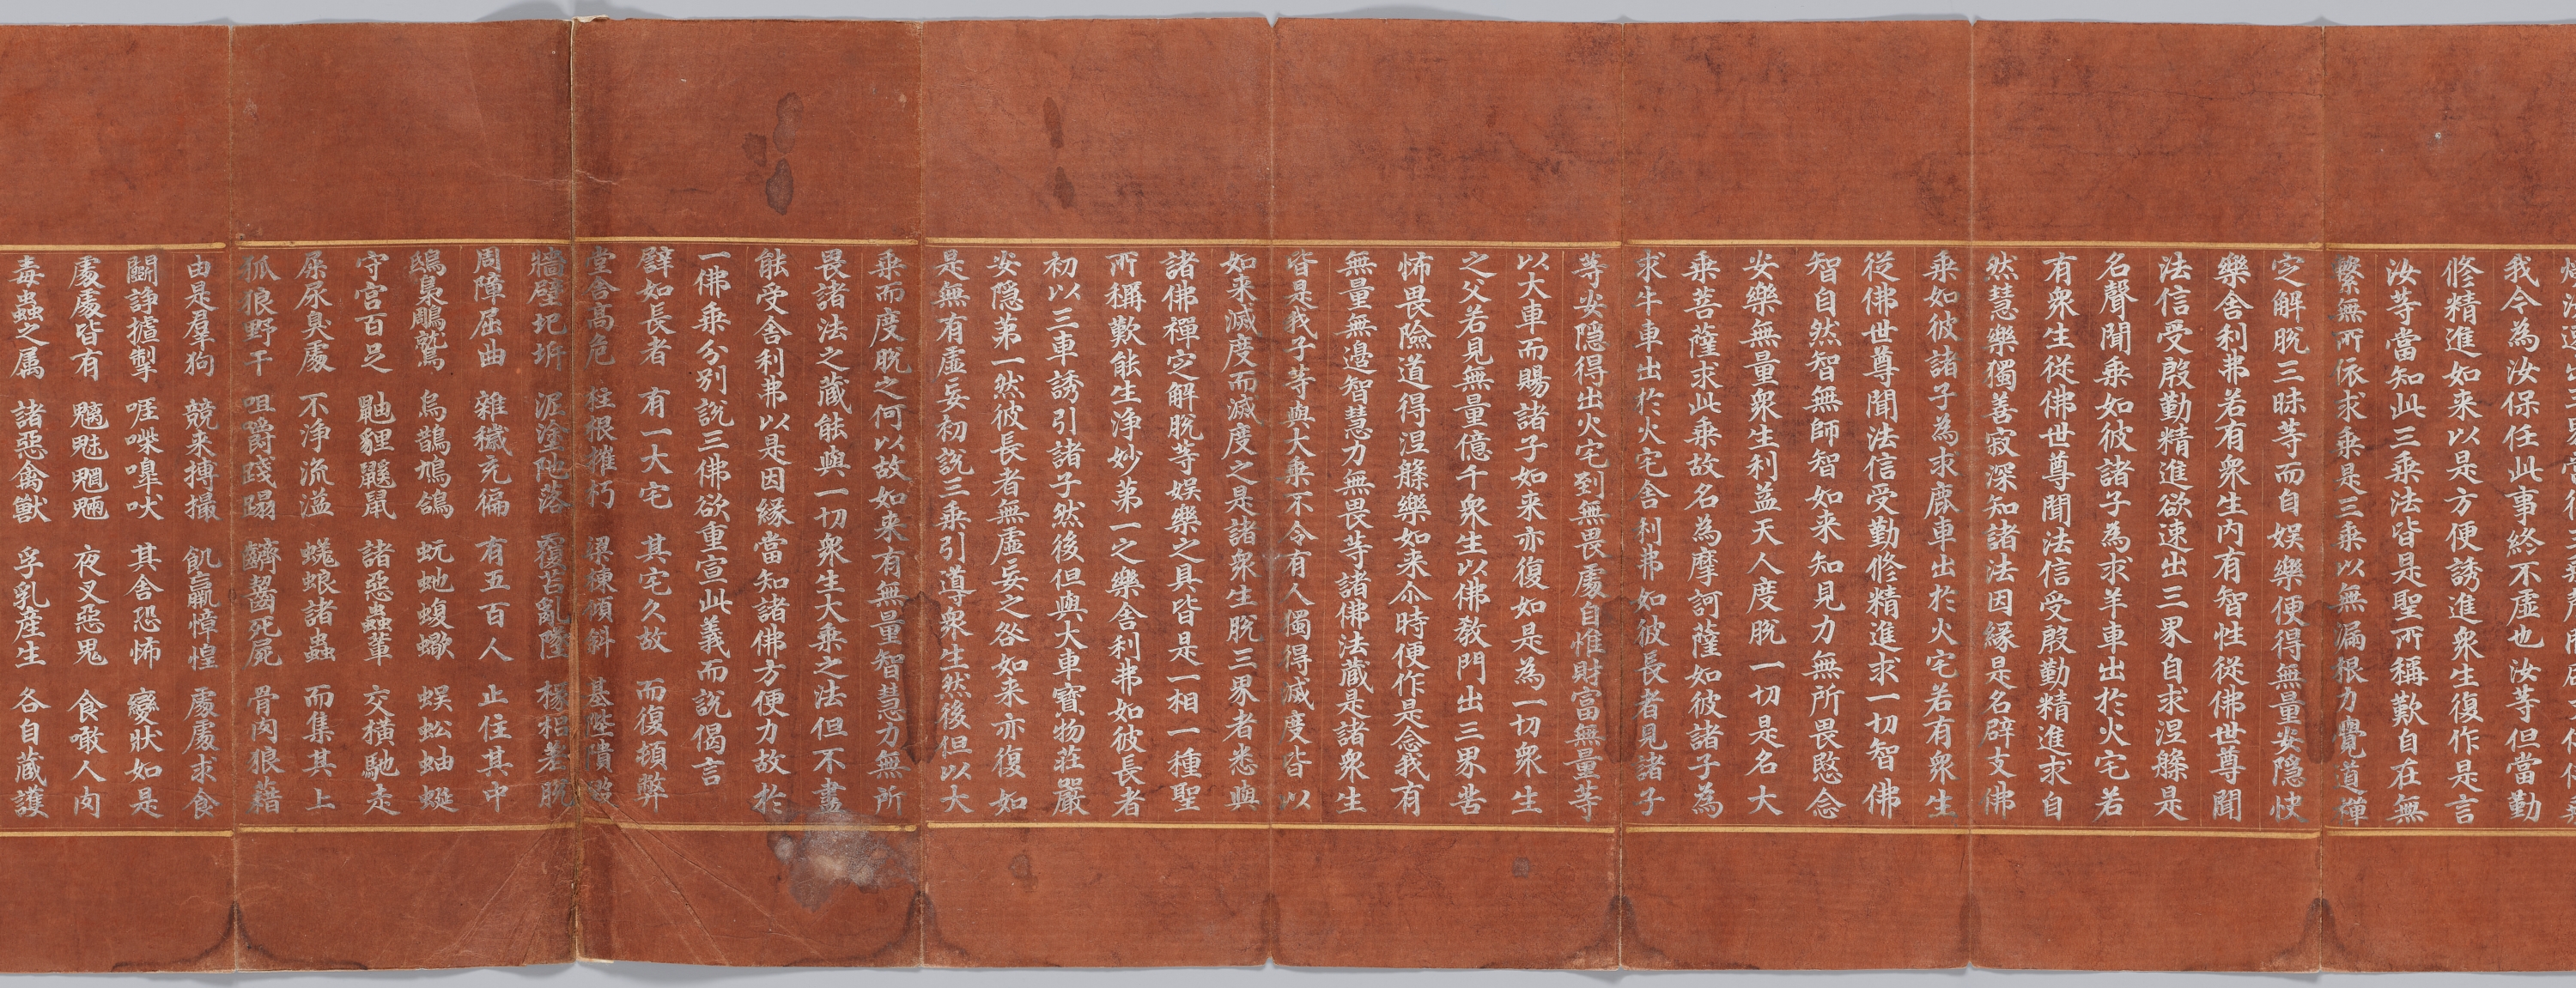 我今為汝保任此事終不虛也汝等但當勤
修精進如来以是方便誘進衆生復作是言
汝等當知此三乘法皆是聖所稱歎自在無
繫無所依求乘是三乘以無漏根力覺道禪
定解脫三昧等而自娛樂便得無量安隱快
樂舍利弗若有衆生内有智性從佛世尊聞
法信受殷勤精進欲速出三界自求涅槃是
名聲聞乘如彼諸子為求羊車出於火宅若
有衆生從佛世尊聞法信受殷勤精進求自
然慧樂獨善寂深知諸法因緣是名辟支佛
乘如彼諸子為求鹿車出於火宅若有衆生
從佛世尊聞法信受勤修精進求一切智佛
智自然智無師智如来知見力無所畏愍念
安樂無量衆生利益天人度脫一切是名大
乘菩薩求此乘故名為摩訶薩如彼諸子為
求牛車出於火宅舍利弗如彼長者見諸子
等安隱得出火宅到無畏處自惟財富無量等
以大車而賜諸子如来亦復如是為一切衆生
之父若見無量億千衆生以佛教門出三界苦
怖畏險道得涅槃樂如来尒時便作是念我有
無量無邊智慧力無畏等諸佛法蔵是諸衆生
皆是我子等與大乘不令有人獨得滅度皆以
如来滅度而滅度之是諸衆生脫三界者悉與
諸佛禪定解脫等娛樂之具皆是一相一種聖
所稱歎能生淨妙第一之樂舍利弗如彼長者
初以三車誘引諸子然後但與大車寶物莊嚴
安隱第一然彼長者無虛妄之咎如来亦復如
是無有虛妄初說三乘引導衆生然後但以大
乘而度脫之何以故如来有無量智慧力無所
畏諸法之蔵能與一切衆生大乘之法但不盡
能受舍利弗以是因緣當知諸佛方便力故於
一佛乘分別說三佛欲重宣此義而說偈言
譬如長者 有一大宅 其宅久故 而復頓弊
堂舍髙危 柱根摧朽 梁棟傾斜 基陛隤毀
牆壁圮坼 泥塗陁落 覆苫亂墜 椽梠差脫
周障屈曲 雜穢充徧 有五百人 止住其中
鴟梟鵰鷲 烏鵲鳩鴿 蚖虵蝮蠍 蜈蚣蚰蜒
守宮百足 鼬貍鼷鼠 諸惡蟲軰 交橫馳走
屎尿臭處 不淨流溢 蜣蜋諸蟲 而集其上
狐狼野干 咀嚼踐蹋 嚌齧死屍 骨肉狼藉
由是羣狗 競来搏撮 飢羸慞惶 處處求食
鬬諍摣掣 啀喍嘷吠 其舍恐怖 變狀如是
處處皆有 魑魅魍魎 夜叉惡鬼 食噉人肉
毒蟲之属 諸惡禽獸 孚乳産生 各自蔵護